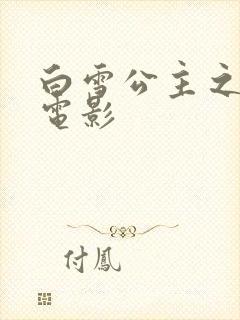 白雪公主之
電影
付鳳